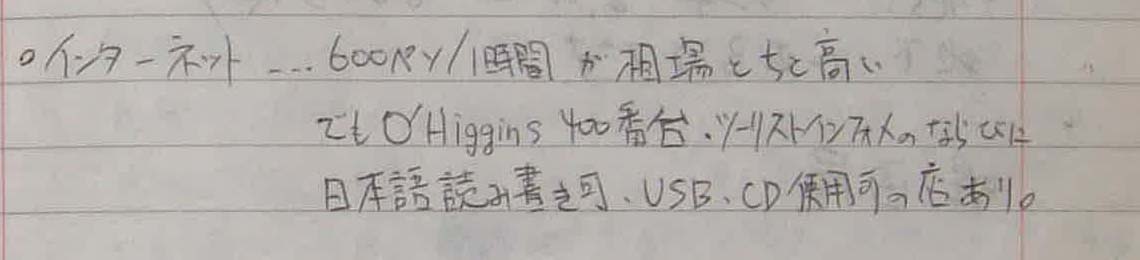 ○インターネット … 600ペソ/1時間 が 相場とちと高い
でも O'Higgins 400番台、ツーリストインフォメのならびに
日本語読み書き可、USB、CD使用可の店あり。